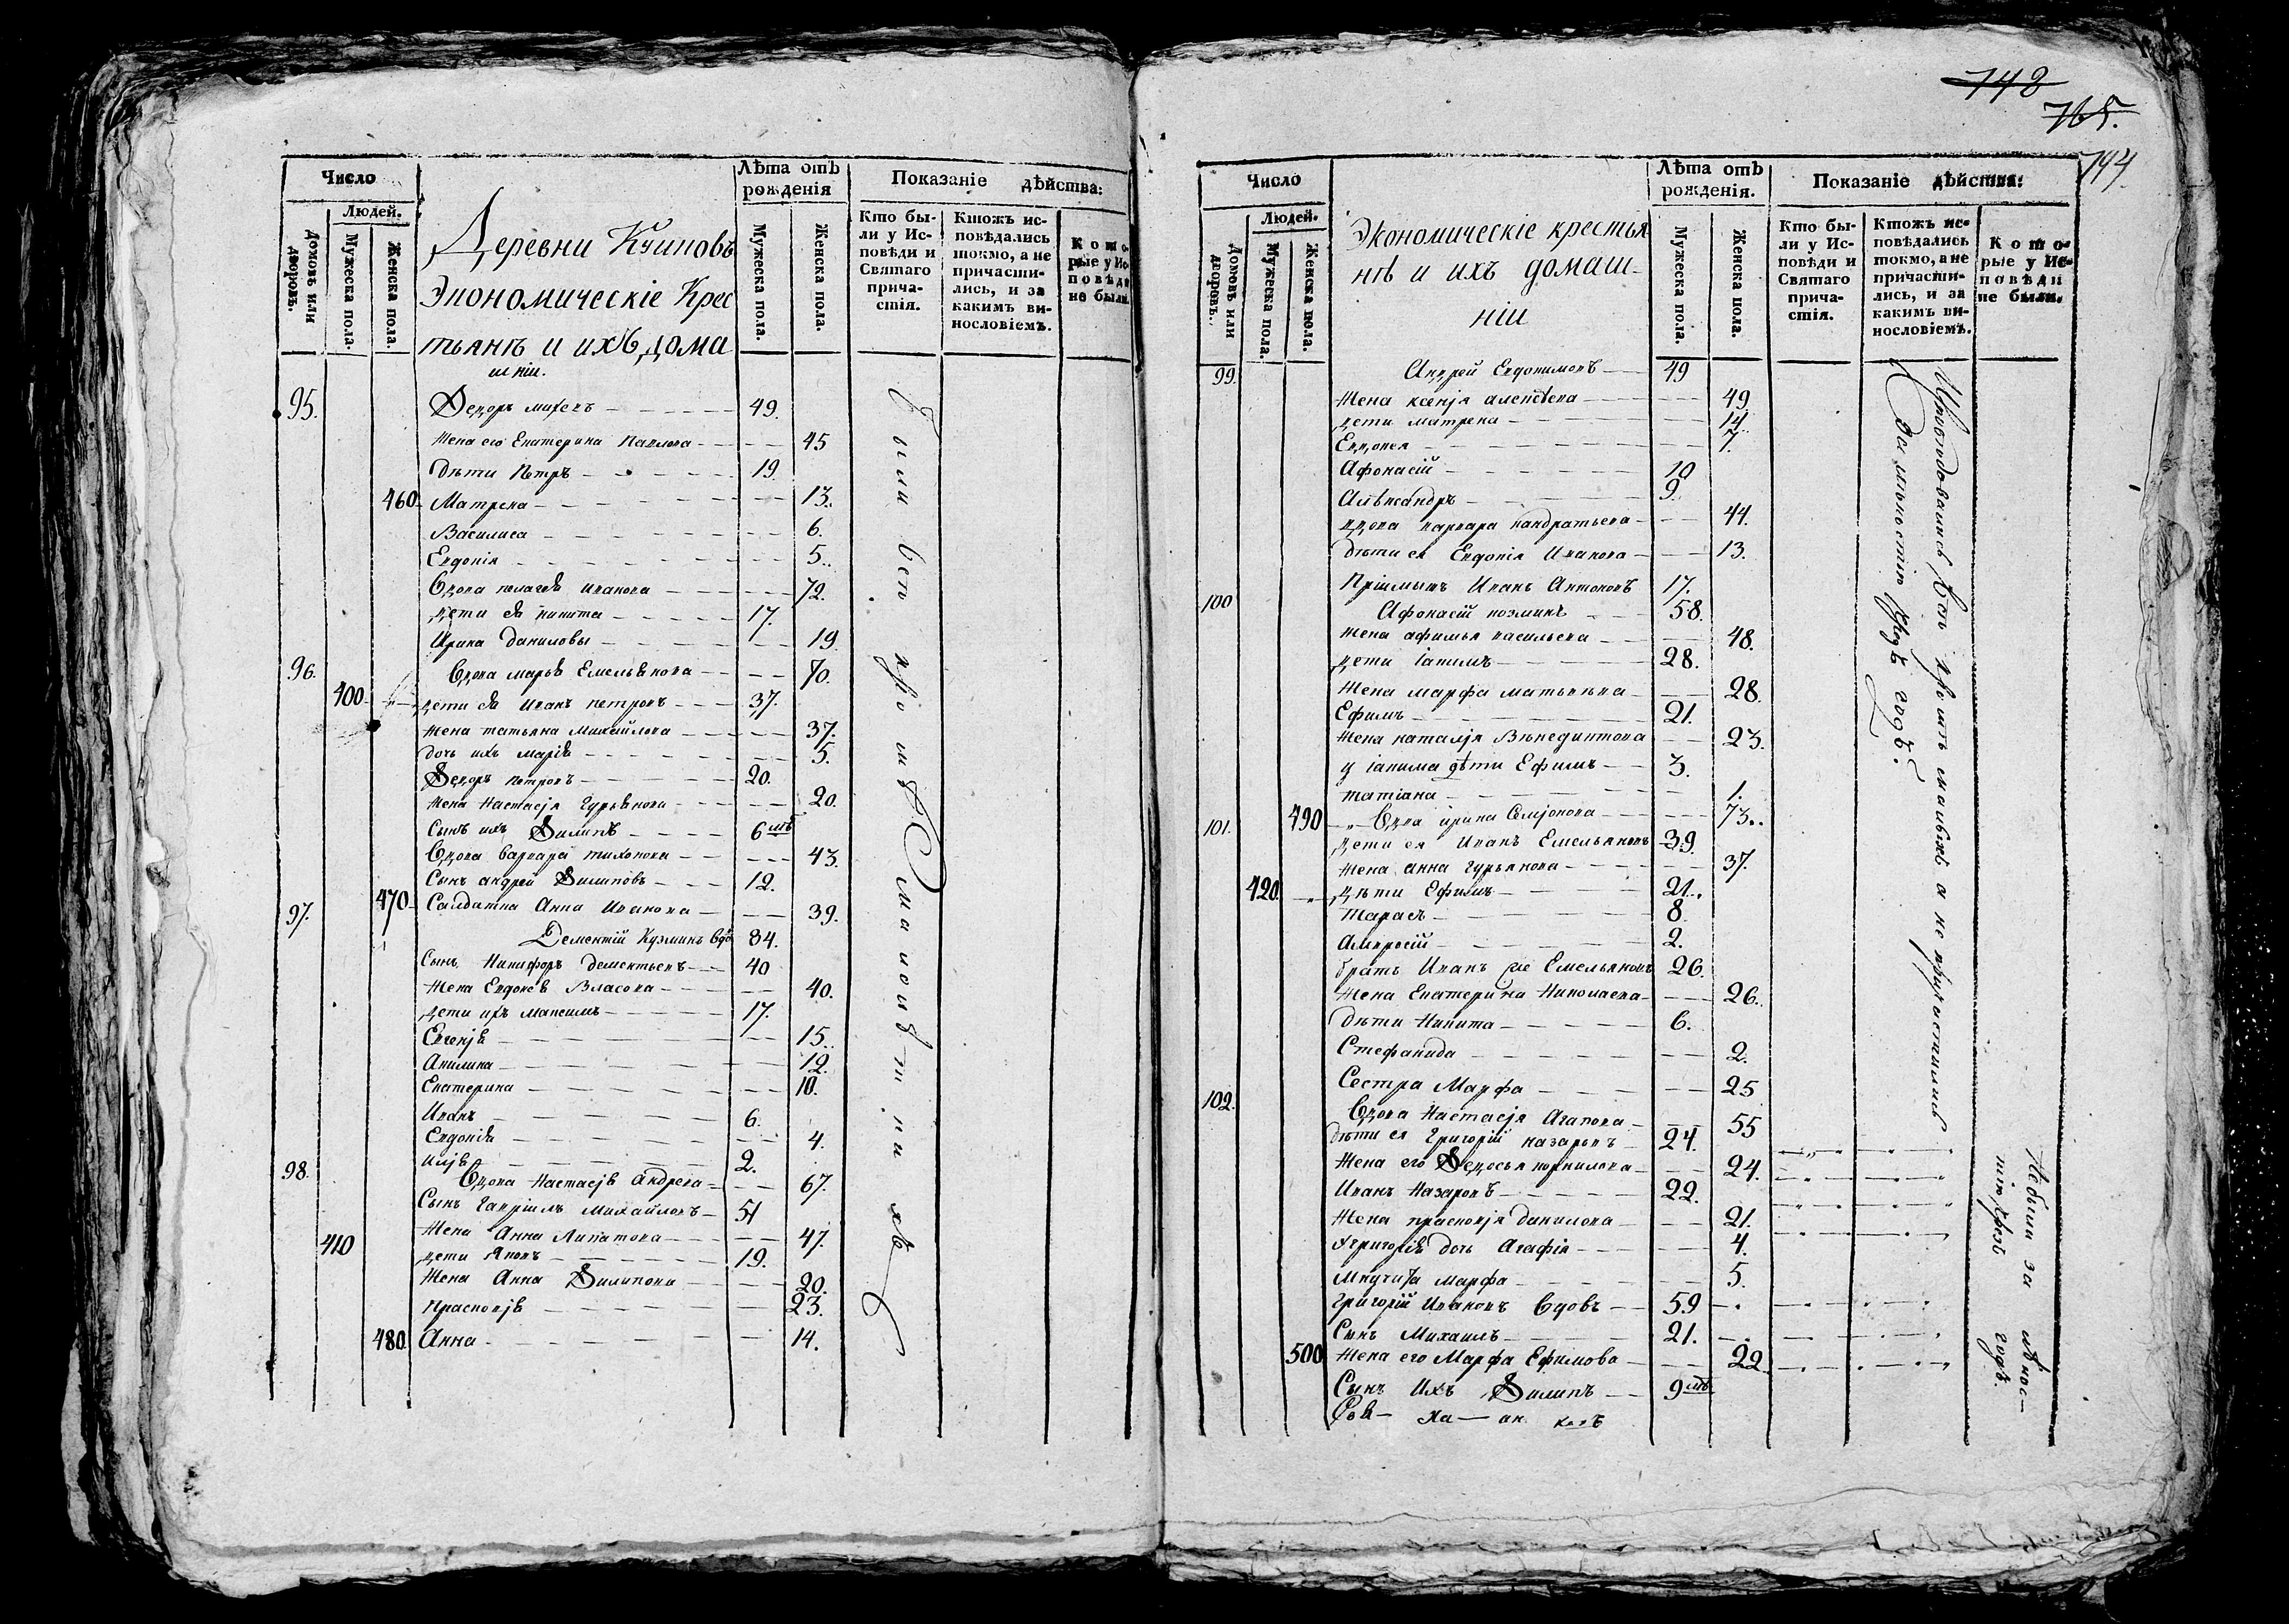 742
765.
744
Число
Людей.
Домовъ или дворовъ.
Мужеска пола.
Женска пола.
Деревни
Экономическіе Крес
тьянѣ и ихъ дома
шніи.
Лѣта отъ рожденія
Мужеска пола.
Женска пола.
Показаніе дѣйства:
Кто бы-
ли у Ис-
повѣди и
Святаго
прича-
стія.
Ктожъ ис-
повѣдались
токмо, а не
причасти-
лись, и за
какимъ ви-
нословіемъ.
Кото-
рые у Ис-
повѣди
не были.
95. Ѳедоръ 49.
Жена его Екатерина Павлова 45
дѣти Петръ 19
460 Матрена 13.
Василиса 6.
Евдокія 5.
Вдова Иванова 72.
дети ея Никита 17.
Ирина даниловы 19
96. Вдова марья Емельянова 70.
400 дети ея Иванъ петровъ 37.
Жена татьяна Михайлова 37.
дочь ихъ марія 5.
Ѳедоръ петровъ 20.
Жена Настасія Гурьянова 20.
Сынъ ихъ Ѳилипъ 6 мѣ
Вдова варвара тихонова 43.
Сынъ андрей Ѳилиповъ 12.
470 Салдатка Анна Иванова 39.
97. Дементій Кузминъ вдо 84.
Сынъ Никифоръ дементьевъ 40
Жена Евдокея Власова 40.
дети ихъ Максимъ 17.
Евгенія 15.
Акилина 12.
Екатерина 10.
Иванъ 6.
Евдокія 4.
Илія 2.
98. Вдова Настасія Андреева 67.
Сынъ Гавріилъ Михайловъ 51
Жена Анна Липатова 47.
410 дети Яковъ 19.
Жена Анна Ѳилипова 20.
Прасковія 23.
480 Анна 14.
Число
Людей.
Домовъ или дворовъ.
Мужеска пола.
Женска пола.
Экономическіе крестья
нѣ и ихъ домаш-
ніи
Лѣта отъ рожденія.
Мужеска пола.
Женска пола.
Показаніе дѣйства:
Кто бы-
ли у Ис-
повѣди и
Святаго
прича-
стія.
Ктожъ ис-
повѣдались
токмо, а не
причасти-
лись, и за
какимъ ви-
нословіемъ.
Кото-
рые у Ис-
повѣди
не были.
99. Андрей Евдокимовъ 49
Жена ксенія алексѣева 49
дети матрена 14.
Евдокея 7.
Афонасій 10
Александръ 9.
вдова варвара кандратьева 44.
дѣти ея Евдокія Иванова 13.
Пріимышъ Иванъ Антоновъ 17.
100 Афонасій козминъ 58.
Жена афимья васильева 48.
дети Іакимъ 28.
Жена марфа матвѣева 28.
Ефимъ 21.
Жена наталія Вѣнедиктова 23.
у іакима дѣти Ефимъ 3.
татіана 1.
101. 490 Вдва ирина Семіонова 73.
дети ея Иванъ Емельяновъ 39.
Жена анна гурьянова 37.
420 дѣти Ефимъ 21.
Тарасъ 8.
Амвросій 2.
братъ Иванъ же Емельяновъ 26.
Жена Екатерина Николаева 26.
дѣти Никита 6.
Стефанида 2.
Сестра Марфа 25
102. Вдова Настасія Агапова 55
дѣти ея Григорій назаровъ 24.
Жена его Ѳедосья корнилова 24.
Иванъ Назаровъ 22.
Жена прасковія данилова 21.
Угригорія дочь Агафія 4.
Внучита марфа 5.
Григорій Ивановъ Вдовъ 59
Сынъ Михаилъ 21.
500 Жена его Марфа Ефимова 22
Сынъ Ихъ Ѳилипъ 9 мѣ.
Небыли за лѣнос-
тію годѣ.